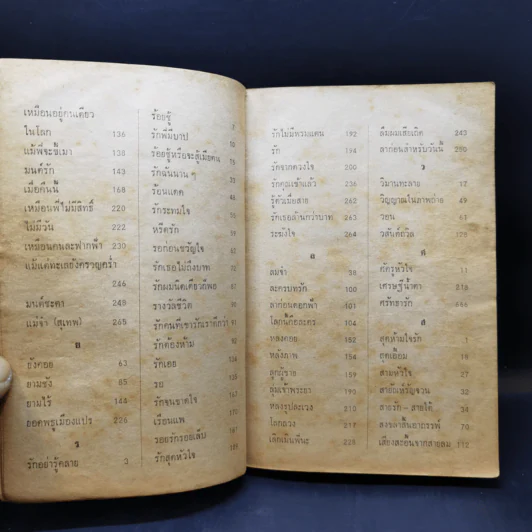 เหมือนอยู่คนเดียว
ในโลก 136
แม้พี่จะขี้เมา 138
มนต์รัก 143
เมื่อคืนนี้ 168
เหมือนพี่ไม่มีสิทธิ์ 220
ไม่มีวัน 222
เหมือนคนละฟากฟ้า 230
แม้แต่ทะเลยังครวญคร่ำ
246
มนต์ชะตา 249
แม่จ๋า (สุเทพ) 265
ย
ยังคอย 63
ยามชัง 85
ยามไร้ 144
ยอดพธูเมืองแปร 226
ร
รักอย่ารู้คลาย 3
ร้อยชู้
รักพี่มีบาป
ร้อยชู้หรือจะสู้เมียตน
รักฉันนาน ๆ
ร้อนแดด
รักระทมใจ
หรีดรัก
รอก่อนขวัญใจ
รักเธอไม่ถึงบาท
รักผมนิดเดียวก็พอ
รางวัลชีวิต
รักคนที่เขารักเราดีกว่า
รักต้องห้าม
รักเธอ
รักจนขาดใจ
เรือนแพ
รอยรักรอยเล็บ
รักสุดหัวใจ
รักไม่มีพรมแดน 192
รัก 194
รักจากดวงใจ 200
รักคุณเข้าแล้ว 236
รู้ตัวเมื่อสาย 262
รักเธอด้านกว่าบาท 263
ระฆังใจ 264
ล
ลมจ๋า 38
ละครบทรัก 100
ลาก่อนดอกฟ้า 101
โลกนี้คือละคร 104
หลงคอย 152
หลังภาพ 154
ลูกผู้ชาย 159
ลุ่มเจ้าพระยา 190
หลงรูปละเวง 210
โลกลวง 217
เล็กเป็นพี่นะ 228
ลืมผมเสียเถิด 243
ลาก่อนสำหรับวันนี้ 250
ว
วิมานทะลาย 12
วิญญาณในภาพถ่าย 49
วอน 61
วสันต์ถวิล 178
ศ
ศัตรูหัวใจ 11
เศรษฐีน้ำตา 218
ศรัทธารัก
ส
สุดห้ามใจรัก 1
สามหัวใจ
สายัณห์รัญจวน 32
สายรัก - สายใต้
เสียงสะอื้นจากสายลม 112